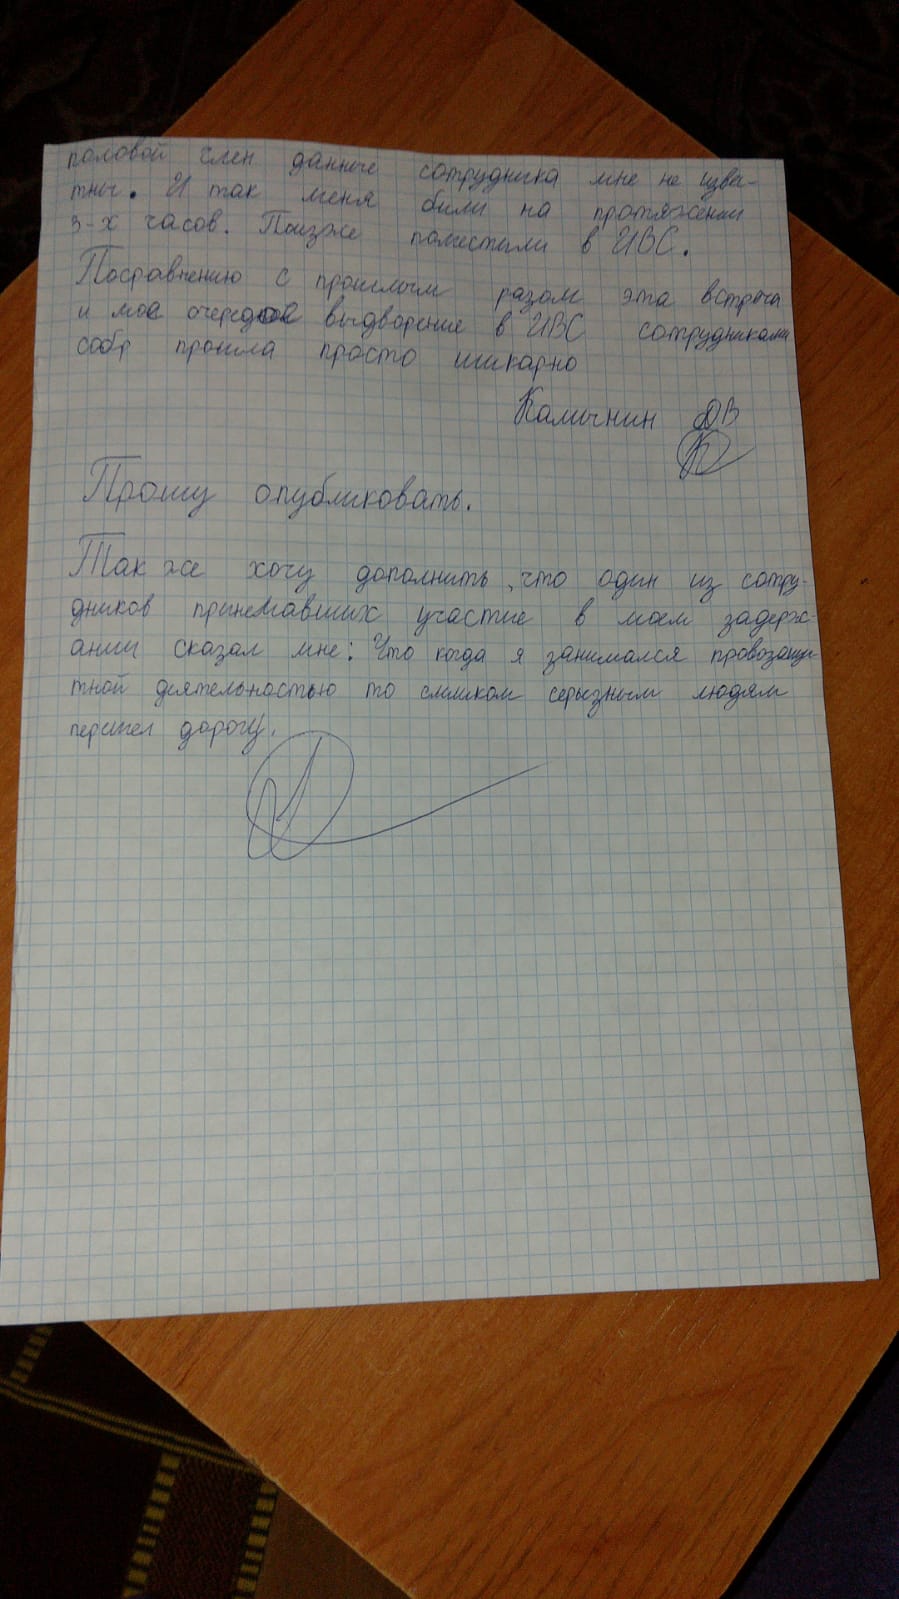 половой член данные сотрудника мне не изве-
тны. И так меня били на протяжении
3-х часов. Позже поместили в ИВС.
Посравнению с прошлым разом эта встреча
и мое очередное выдворение в ИВС сотрудниками
собр прошла просто шикарно
Камынин ДВ
Прошу опубликовать.
Так же хочу дополнить, что один из сотру-
дников принемавших участие в моем задерж-
ании сказал мне: Что когда я занимался провозащи
тной деятельностью то слишком серьзным людям
перешел дорогу.